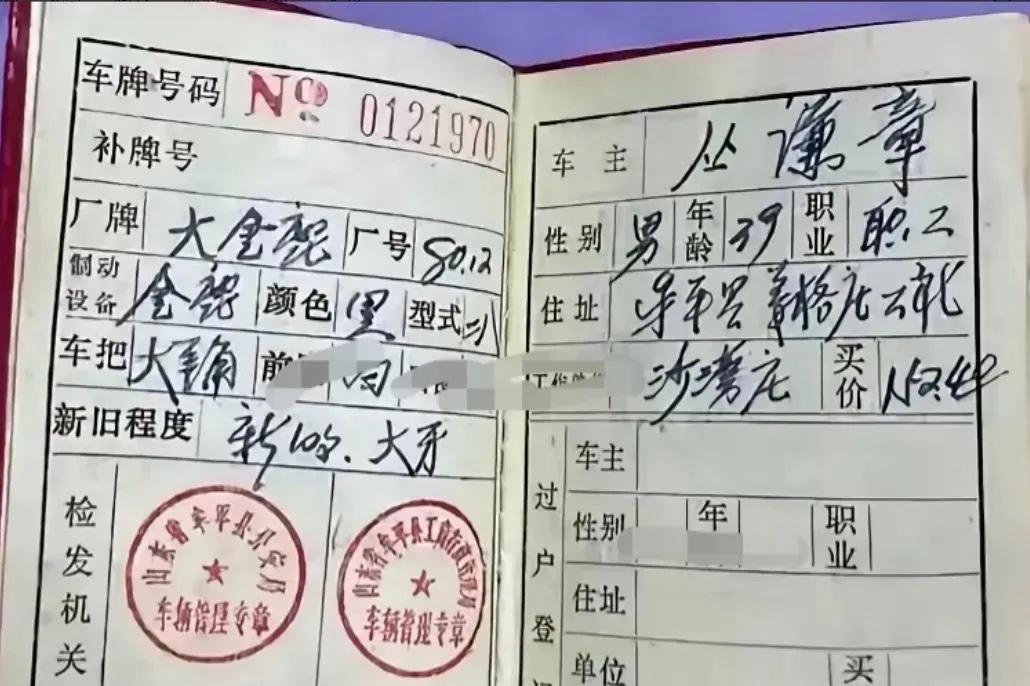 车牌号码 No 0121970
补牌号
厂牌 大金鹿 厂号 80.12
制动设备 金鹿 颜色 黑 型式 二八
车把 大弯角 前
新旧程度 新100%、大牙
检发机关
山东省牟平县公安局
车辆管理专章
山东省牟平县工商行政管理局
车辆管理专章
车主 丛谦章
性别 男 年龄 39 职业 职工
住址 牟平县 莱格庄公社
沙湾庄 买价 152.42
过户登
车主
性别 年 职业
住址
单位 买